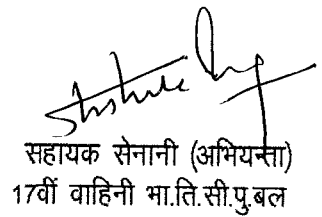 सहायक सेनानी (अभियन्ता)
17वीं वाहिनी भा.ति.सी.पु.बल